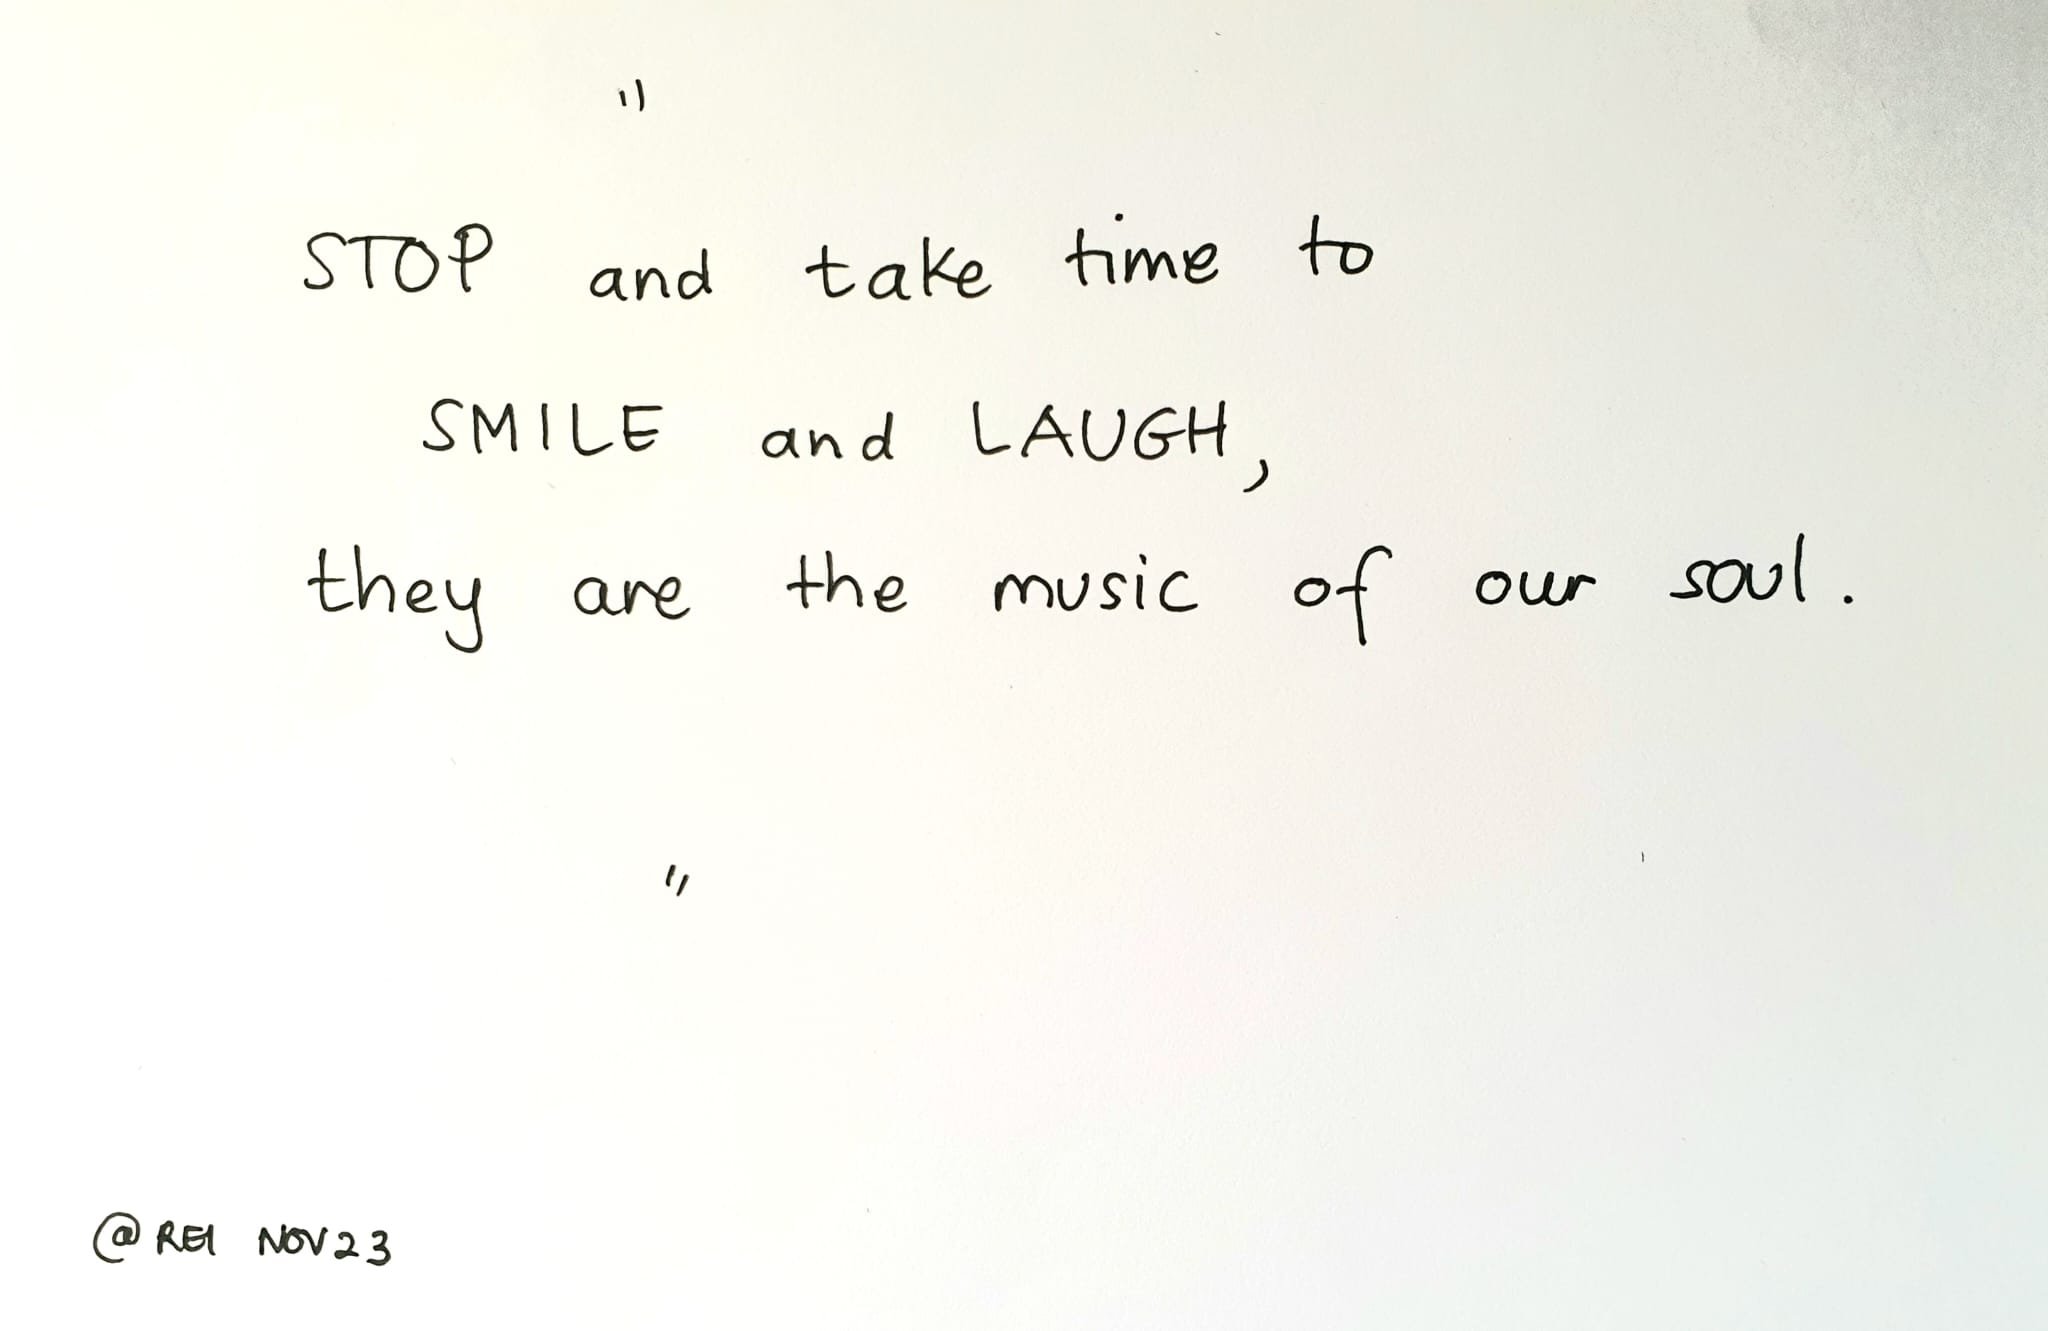 "
STOP and take time to
SMILE and LAUGH,
they are the music of our soul.
"
@REI NOV23